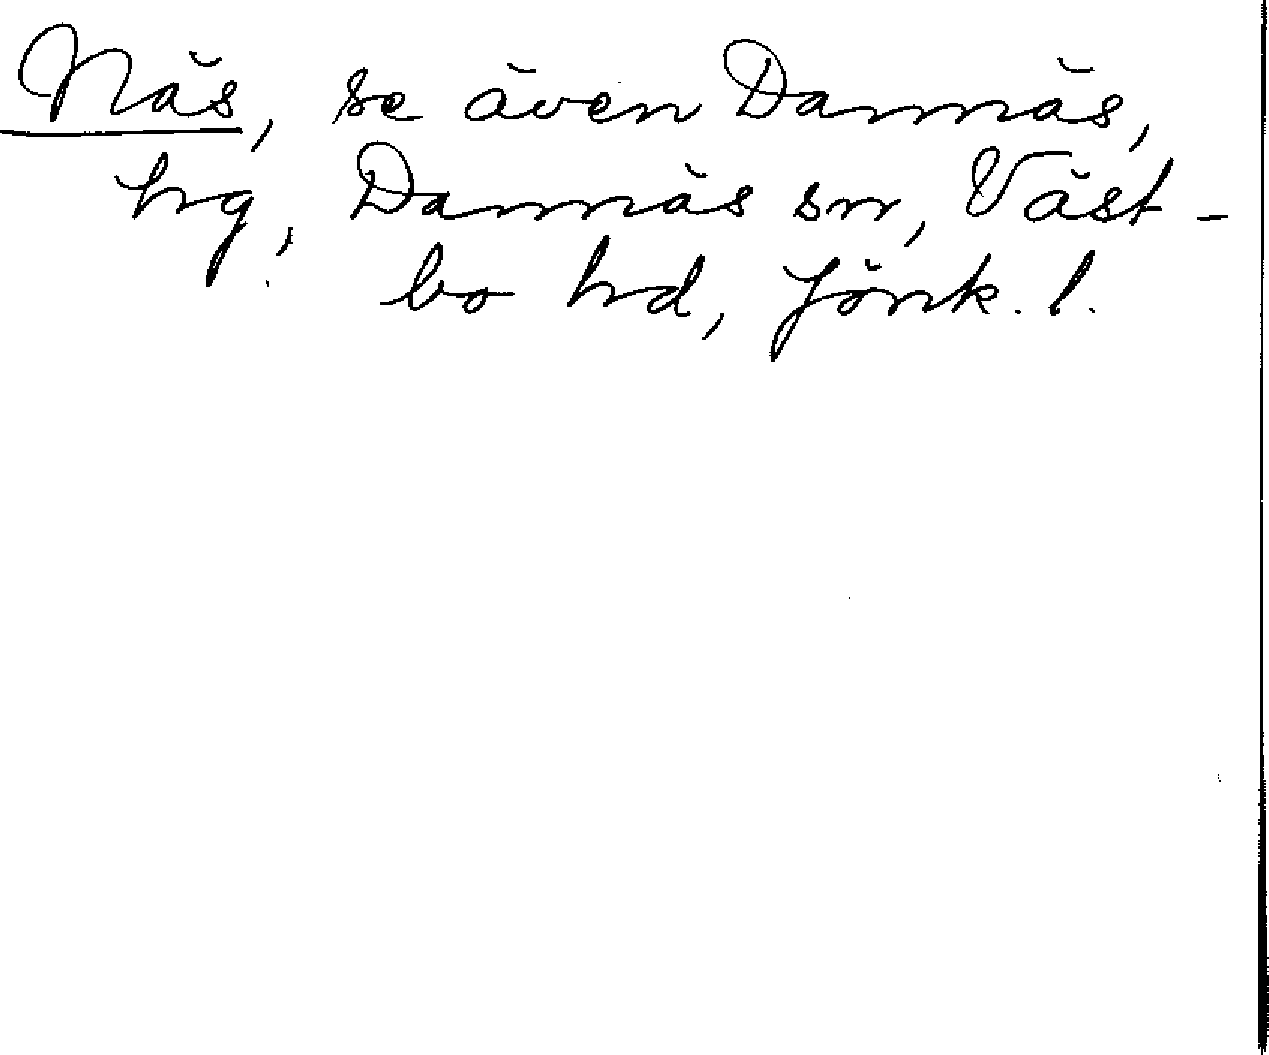 Näs, se även Dannäs,
hg, Dannäs sn, Väst-
bo hd, Jönk. l.